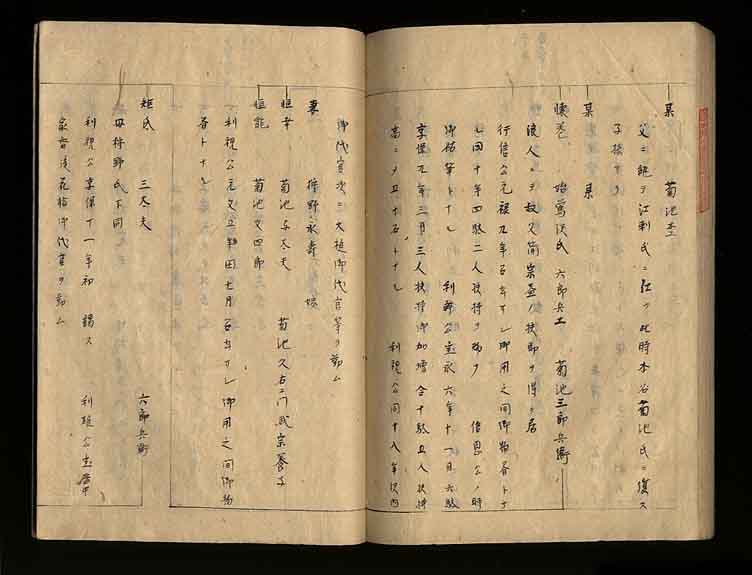 某 菊池杢
父ニ絶ヲ江刺氏ニ、此時本名菊池氏ニ復ス
子孫
某 某
始鶯沢氏 六郎兵エ 菊池三郎兵衛
浪人ニテ叔父宗益ノ扶助ヲ得テ居
行信公元禄九年召出サレ御用之間御物書トナ
ル同十年四駄二人扶持ヲ賜フ 信恩公ノ時
御祐筆トナル 利幹公宝永六年十一月六駄
享保九年三月三人扶持御加増合十駄五人扶持
高ニテ五十石トナル 利視公同十八年 内
御代官次ニ大 御代官等ヲ勤ム
妻 狩野永寿 嫁
菊池与太夫 菊池久右エ門武宗養子
恒能 菊池文四郎
利視公元文五年 七月召出サレ御用之間御物
書トナル
矩氏 三太夫 六郎兵衛
母狩野氏下同
利視公享保十一年初 謁ス 利雄公宝暦中
家督後花輪御代官ヲ勤ム